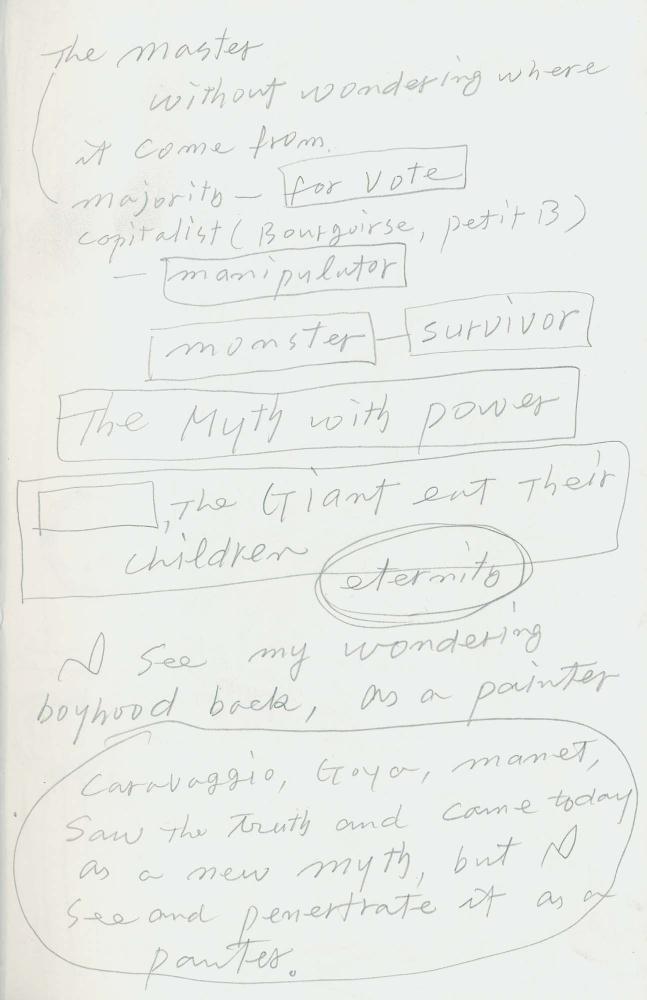 The master
without wondering where
it come from.
majority — for vote
capitalist (Bourguirse, petit B)
— manipulator
monster — survivor
The Myth with power
, The Giant eat Their
children
eternity
I see my wondering
boyhood back, as a painter
Caravaggio, Goya, manet,
Saw the Truth and came today
as a new myth, but I
see and penertrate it as a
painter.